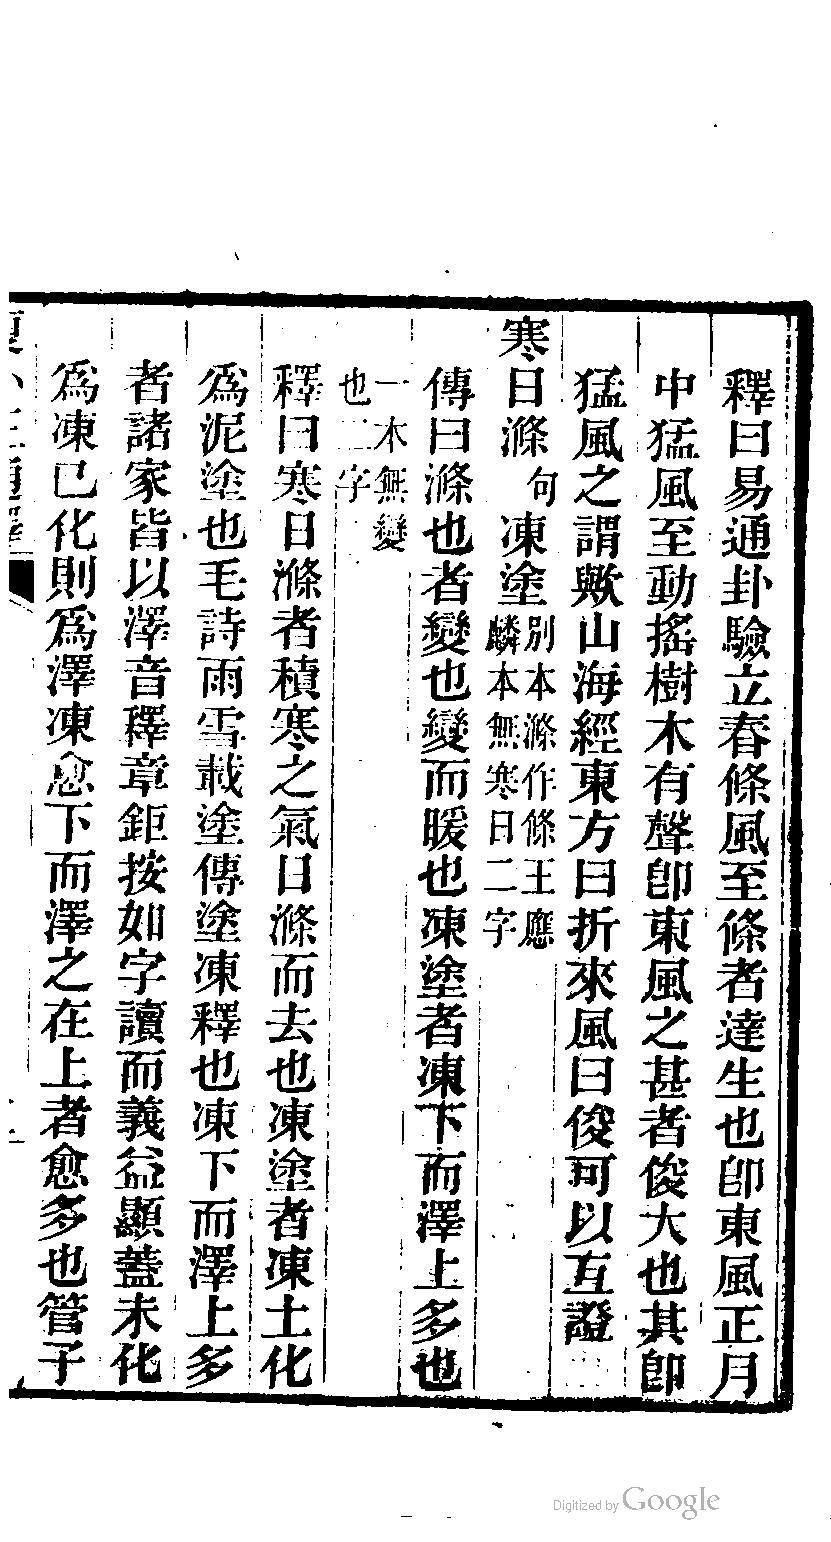 釋曰易通卦驗立春條風至條者達生也卽東風正月
中猛風至動搖樹木有聲卽東風之甚者俊大也其卽
猛風之謂歟山海經東方曰折來風曰俊可以互證
寒日滌句凍塗別本滌作條王應麟本無寒日二字
傳曰滌也者變也變而暖也凍塗者凍下而澤上多也
一本無變也二字
釋曰寒日滌者積寒之氣日滌而去也凍塗者凍土化
為泥塗也毛詩雨雪載塗傳塗凍釋也凍下而澤上多
者諸家皆以澤音釋章鉅按如字讀而義益顯蓋未化
為凍已化則為澤凍愈下而澤之在上者愈多也管子
夏小正通釋
Digitized by Google